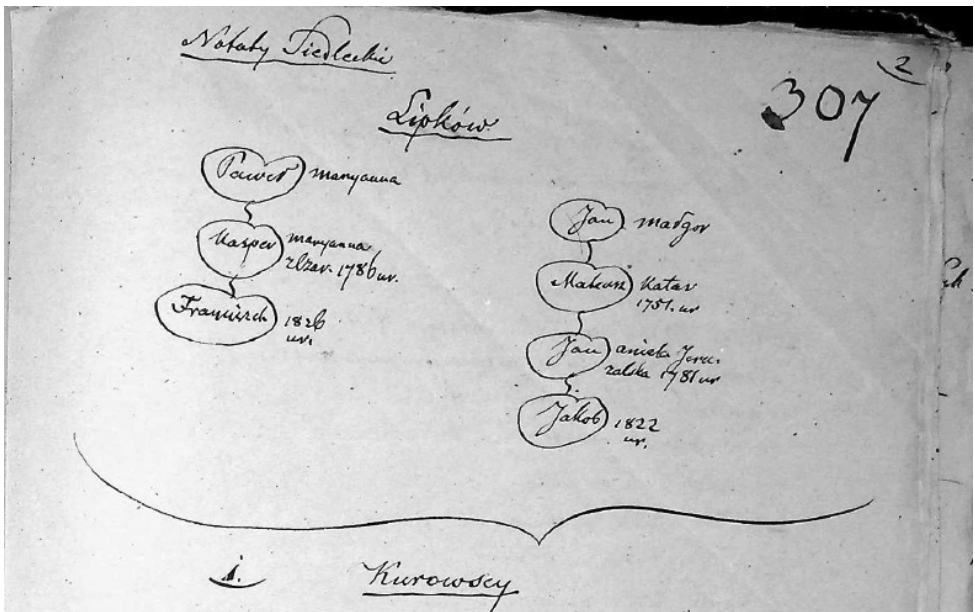 Notaty Siedleckie
2
307
Lipków
Paweł maryanna
Kasper maryanna
1786 ur.
Franciszek 1826
ur.
Jan małgor
Mateusz Katar
1751. ur
Jan aniela Jeru-
zalska 1781 ur
Jakob 1822
ur.
1. Kurowscy